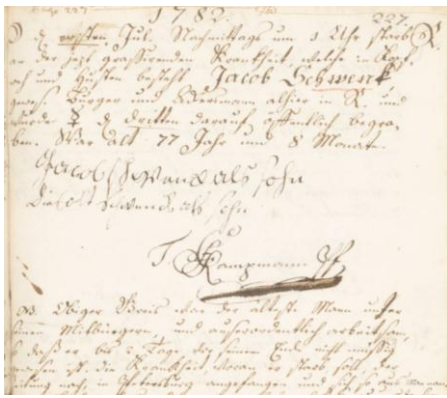 1782.
227.
d. ersten Jul. Nachmittags um 1 Uhr starb
an der jezt grassirenden Krankheit, welche in
und Husten besteht Jacob Schwenk
gewes. Bürger und Ackersmann alhier in R. und
wurde d. dritten darauf öffentlich begra-
ben. War alt 77 Jahr und 8 Monate.
Jacob Schwenck als sohn
Diebolt Schwenck als sohn
Kampmann Pf
Obiger Greis war der älteste Mann unter
seinen Mitbürgern, und ausserordentlich arbeitsam,
so daß er bis 2 Tage vor seinem Ende nicht müssig
gewesen ist. die Krankheit, woran er starb soll der
Zeitung nach, in Petersburg angefangen und sich so